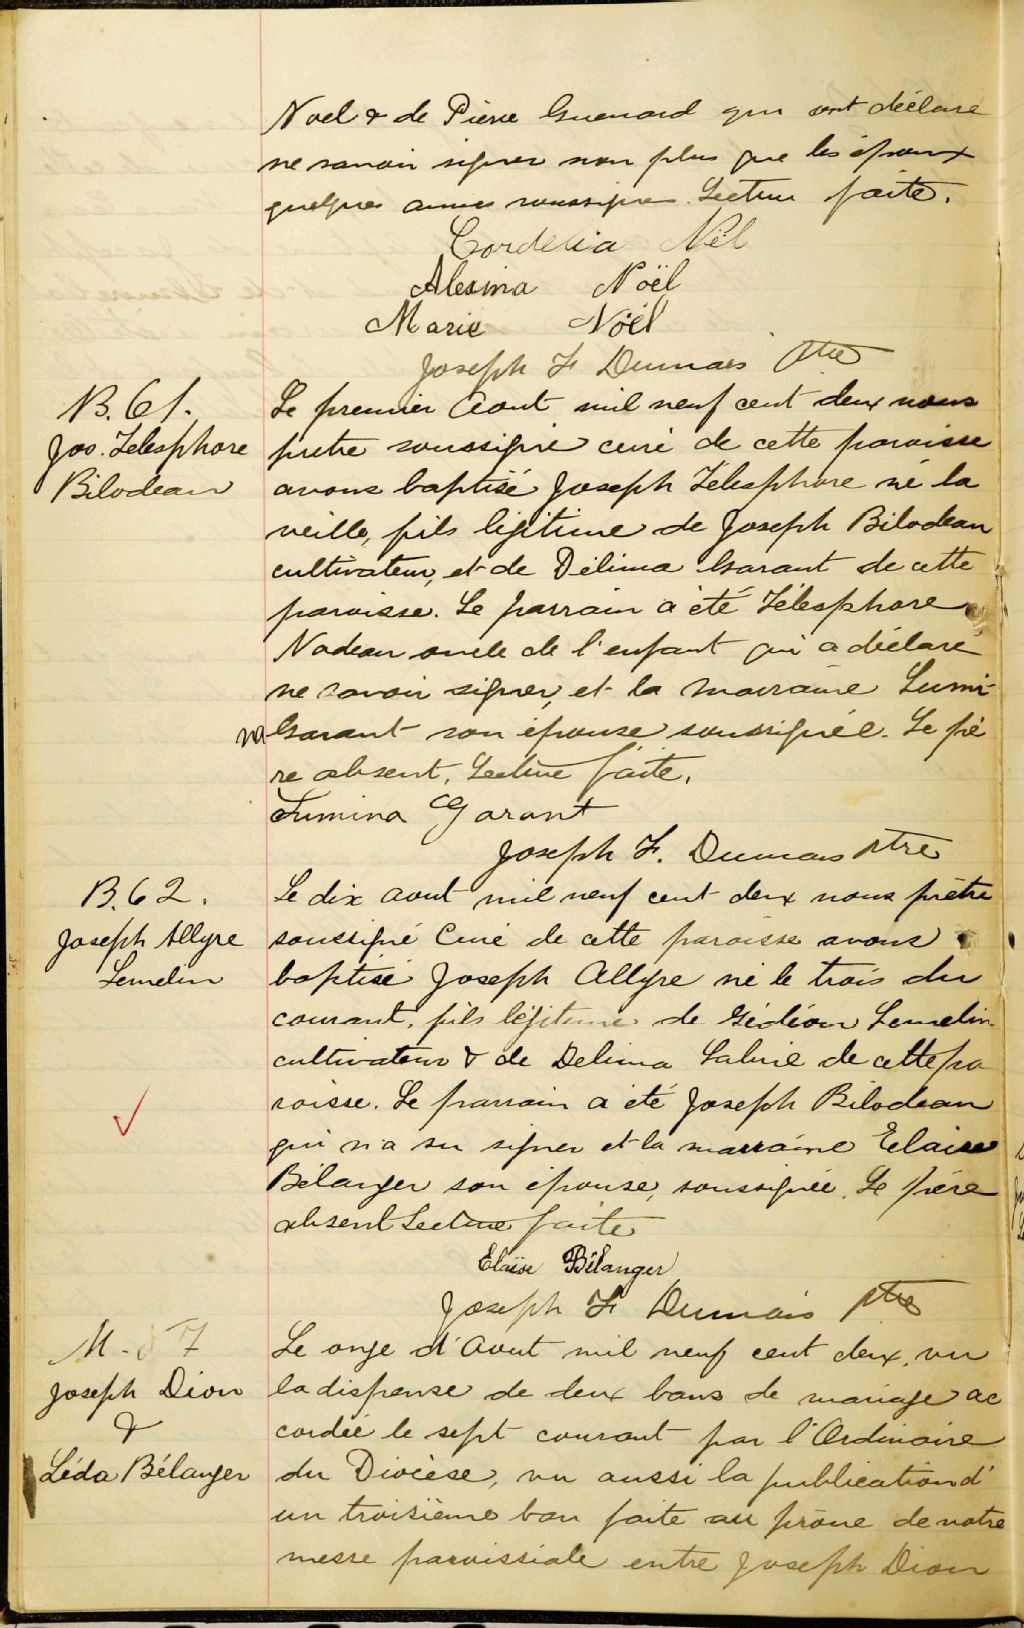 Noel & de Pierre Guenard qui ont déclaré
ne savoir signer non plus que les époux
quelques amies soussignes. Lecture faite.
Cordelia Nël
Alexina Noël
Marie Noël
Joseph F. Dumais Ptre
B. 61.
Jos. Telesphore
Bilodeau
Le premier Aout mil neuf cent deux nous
pretre soussigné curé de cette paroisse
avons baptisé Joseph Télesphore né la
veille, fils légitime de Joseph Bilodeau
cultivateur, et de Délima Garant de cette
paroisse. Le parrain a été Télesphore
Nadeau oncle de l'enfant qui a déclaré
ne savoir signer, et la marraine Lumi-
na Garant son épouse soussignée. Le pè
re absent. Lecture faite.
Lumina Garant
Joseph F. Dumais Ptre
B. 62.
Joseph Allyre
Lemelin
Le dix aout mil neuf cent deux nous prêtre
soussigné Curé de cette paroisse avons
baptisé Joseph Allyre né le trois du
courant, fils légitime de Gédéon Lemelin
cultivateur & de Delima Labrie de cette pa
roisse. Le parrain a été Joseph Bilodeau
qui n'a su signer et la marraine Elaise
Bélanger son épouse, soussignée. Le père
absent Lecture faite
Elaïse Bélanger
Joseph F. Dumais Ptre
M - 7
Joseph Dion
&
Léda Bélanger
Le onze d'Aout mil neuf cent deux, vu
la dispense de deux bans de mariage ac
cordée le sept courant par l'Ordinaire
du Diocèse, vu aussi la publication d'
un troisième ban faite au prône de notre
messe paroissiale entre Joseph Dion